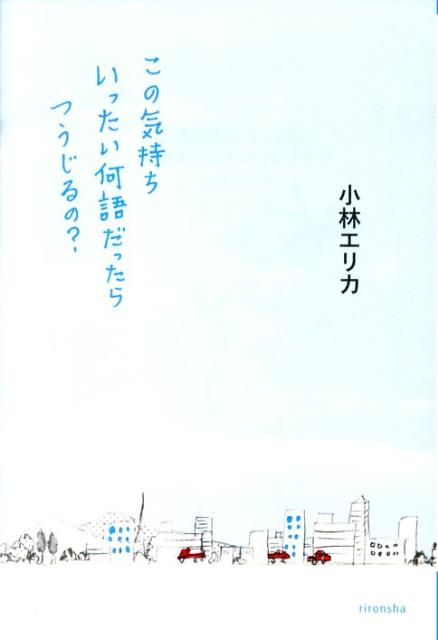 小林エリカ
この気持ち
いったい何語だったら
つうじるの?
rironsha